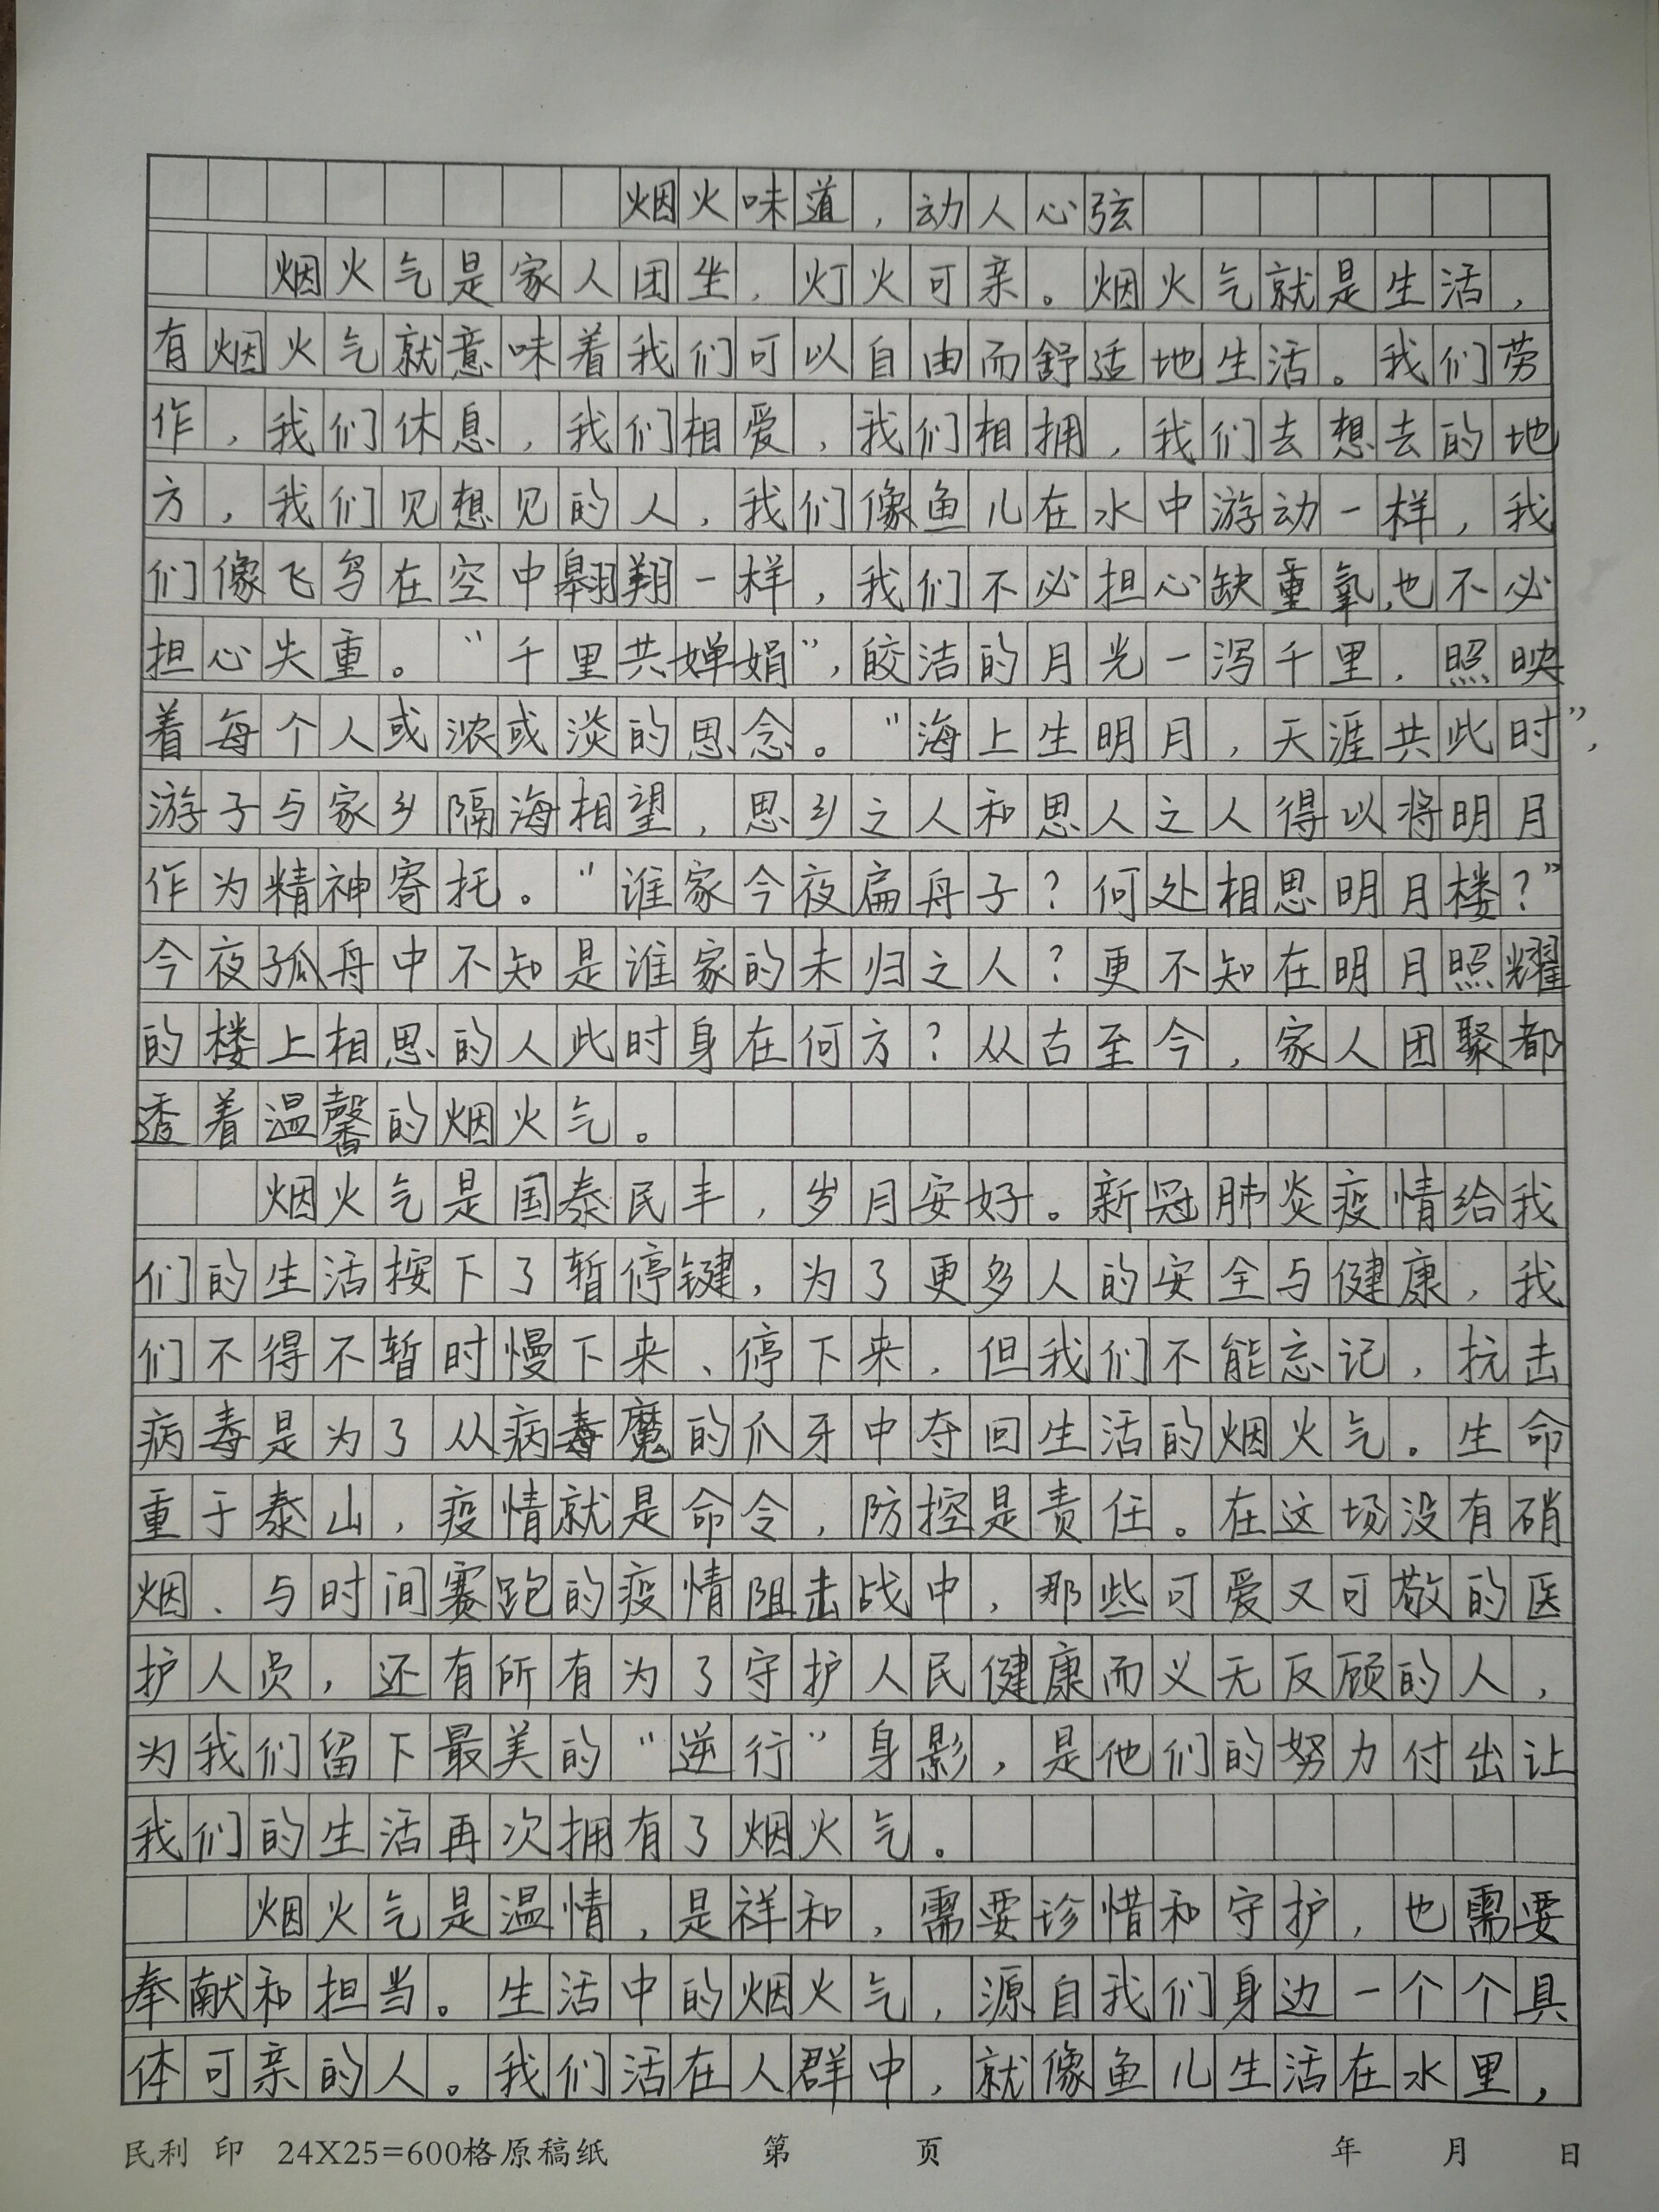 烟火味道，动人心弦
烟火气是家人团坐，灯火可亲。烟火气就是生活，
有烟火气就意味着我们可以自由而舒适地生活。我们劳
作，我们休息，我们相爱，我们相拥，我们去想去的地
方，我们见想见的人，我们像鱼儿在水中游动一样，我
们像飞鸟在空中翱翔一样，我们不必担心缺氧，也不必
担心失重。“千里共婵娟”，皎洁的月光一泻千里，照映
着每个人或浓或淡的思念。“海上生明月，天涯共此时”，
游子与家乡隔海相望，思乡之人和思人之人得以将明月
作为精神寄托。“谁家今夜扁舟子？何处相思明月楼？”
今夜孤舟中不知是谁家的未归之人？更不知在明月照耀
的楼上相思的人此时身在何方？从古至今，家人团聚都
透着温馨的烟火气。
烟火气是国泰民丰，岁月安好。新冠肺炎疫情给我
们的生活按下了暂停键，为了更多人的安全与健康，我
们不得不暂时慢下来、停下来，但我们不能忘记，抗击
病毒是为了从病毒魔的爪牙中夺回生活的烟火气。生命
重于泰山，疫情就是命令，防控是责任。在这场没有硝
烟、与时间赛跑的疫情阻击战中，那些可爱又可敬的医
护人员，还有所有为了守护人民健康而义无反顾的人，
为我们留下最美的“逆行”身影，是他们的努力付出让
我们的生活再次拥有了烟火气。
烟火气是温情，是祥和，需要珍惜和守护，也需要
奉献和担当。生活中的烟火气，源自我们身边一个个具
体可亲的人。我们活在人群中，就像鱼儿生活在水里，
民利 印 24X25=600格原稿纸 第 页 年 月 日